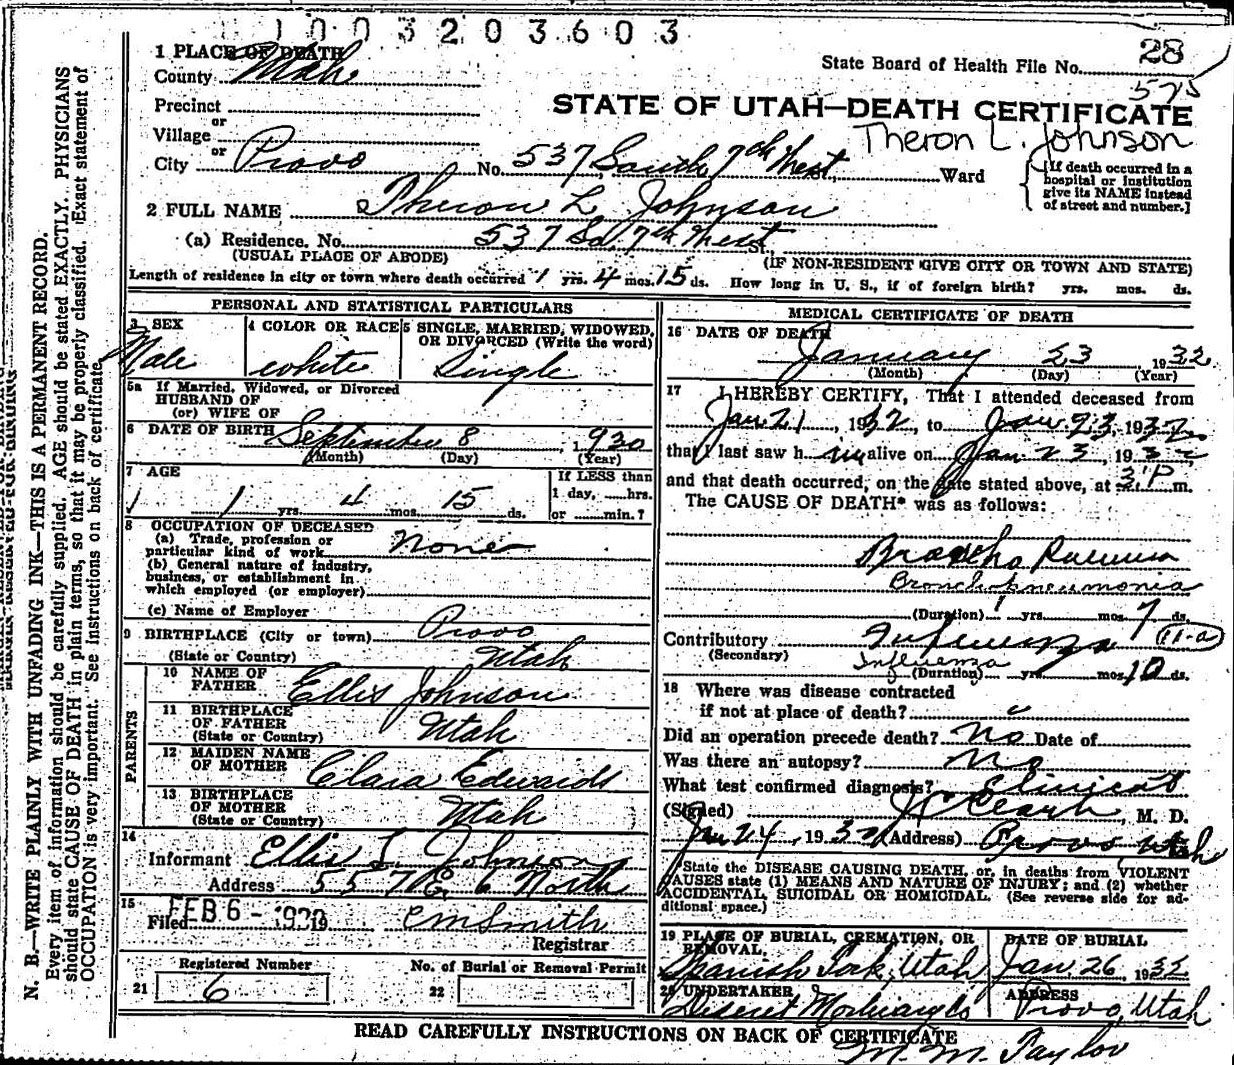 1003203603
State Board of Health File No. 28
575
STATE OF UTAH—DEATH CERTIFICATE
Theron L. Johnson
1 PLACE OF DEATH
County Utah
Precinct
or
Village
or
City Provo No. 537 South 7th West St., Ward
[If death occurred in a hospital or institution give its NAME instead of street and number.]
2 FULL NAME Theron L. Johnson
(a) Residence. No. 537 So. 7th West St.
(USUAL PLACE OF ABODE) (IF NON-RESIDENT GIVE CITY OR TOWN AND STATE)
Length of residence in city or town where death occurred 1 yrs. 4 mos. 15 ds. How long in U. S., if of foreign birth? yrs. mos. ds.
PERSONAL AND STATISTICAL PARTICULARS
3 SEX
Male
4 COLOR OR RACE
white
5 SINGLE, MARRIED, WIDOWED, OR DIVORCED (Write the word)
Single
5a If Married, Widowed, or Divorced
HUSBAND OF
(or) WIFE OF
6 DATE OF BIRTH September 8, 1930
(Month) (Day) (Year)
7 AGE
1 yrs. 4 mos. 15 ds.
If LESS than
1 day, hrs.
or min.?
8 OCCUPATION OF DECEASED
(a) Trade, profession or
particular kind of work None
(b) General nature of industry,
business, or establishment in
which employed (or employer)
(c) Name of Employer
9 BIRTHPLACE (City or town) Provo
(State or Country) Utah
PARENTS
10 NAME OF
FATHER Ellis Johnson
11 BIRTHPLACE
OF FATHER
(State or Country) Utah
12 MAIDEN NAME
OF MOTHER Clara Edwards
13 BIRTHPLACE
OF MOTHER
(State or Country) Utah
14
Informant Ellis L. Johnson
Address 557 6 North
15
Filed FEB 6 - 19 CM Smith
Registrar
Registered Number
21 6
No. of Burial or Removal Permit
22
MEDICAL CERTIFICATE OF DEATH
16 DATE OF DEATH
January 23 1932
(Month) (Day) (Year)
17 I HEREBY CERTIFY, That I attended deceased from
Jan 21, 1932, to Jan 23, 1932
that I last saw him alive on Jan 23, 1932
and that death occurred, on the date stated above, at 3 P m.
The CAUSE OF DEATH* was as follows:
Broncho Pneumonia
Bronchopneumonia
(Duration) yrs. mos. 7 ds.
Contributory Influenza (11-a)
(Secondary) Influenza
(Duration) yrs. mos. 10 ds.
18 Where was disease contracted
if not at place of death?
Did an operation precede death? No Date of
Was there an autopsy? No
What test confirmed diagnosis? Clinical
(Signed) M. D.
Jan 24, 1932 (Address) Provo, Utah
*State the DISEASE CAUSING DEATH, or, in deaths from VIOLENT
CAUSES state (1) MEANS AND NATURE OF INJURY; and (2) whether
ACCIDENTAL, SUICIDAL OR HOMICIDAL. (See reverse side for ad-
ditional space.)
19 PLACE OF BURIAL, CREMATION, OR
REMOVAL.
Spanish Fork, Utah
DATE OF BURIAL
Jan 26, 1932
20 UNDERTAKER
Deseret Mortuary Co
ADDRESS
Provo, Utah
READ CAREFULLY INSTRUCTIONS ON BACK OF CERTIFICATE
M. M. Taylor
N. B.—WRITE PLAINLY WITH UNFADING INK—THIS IS A PERMANENT RECORD.
Every item of information should be carefully supplied. AGE should be stated EXACTLY. PHYSICIANS
should state CAUSE OF DEATH in plain terms, so that it may be properly classified. Exact statement of
OCCUPATION is very important. See instructions on back of certificate.